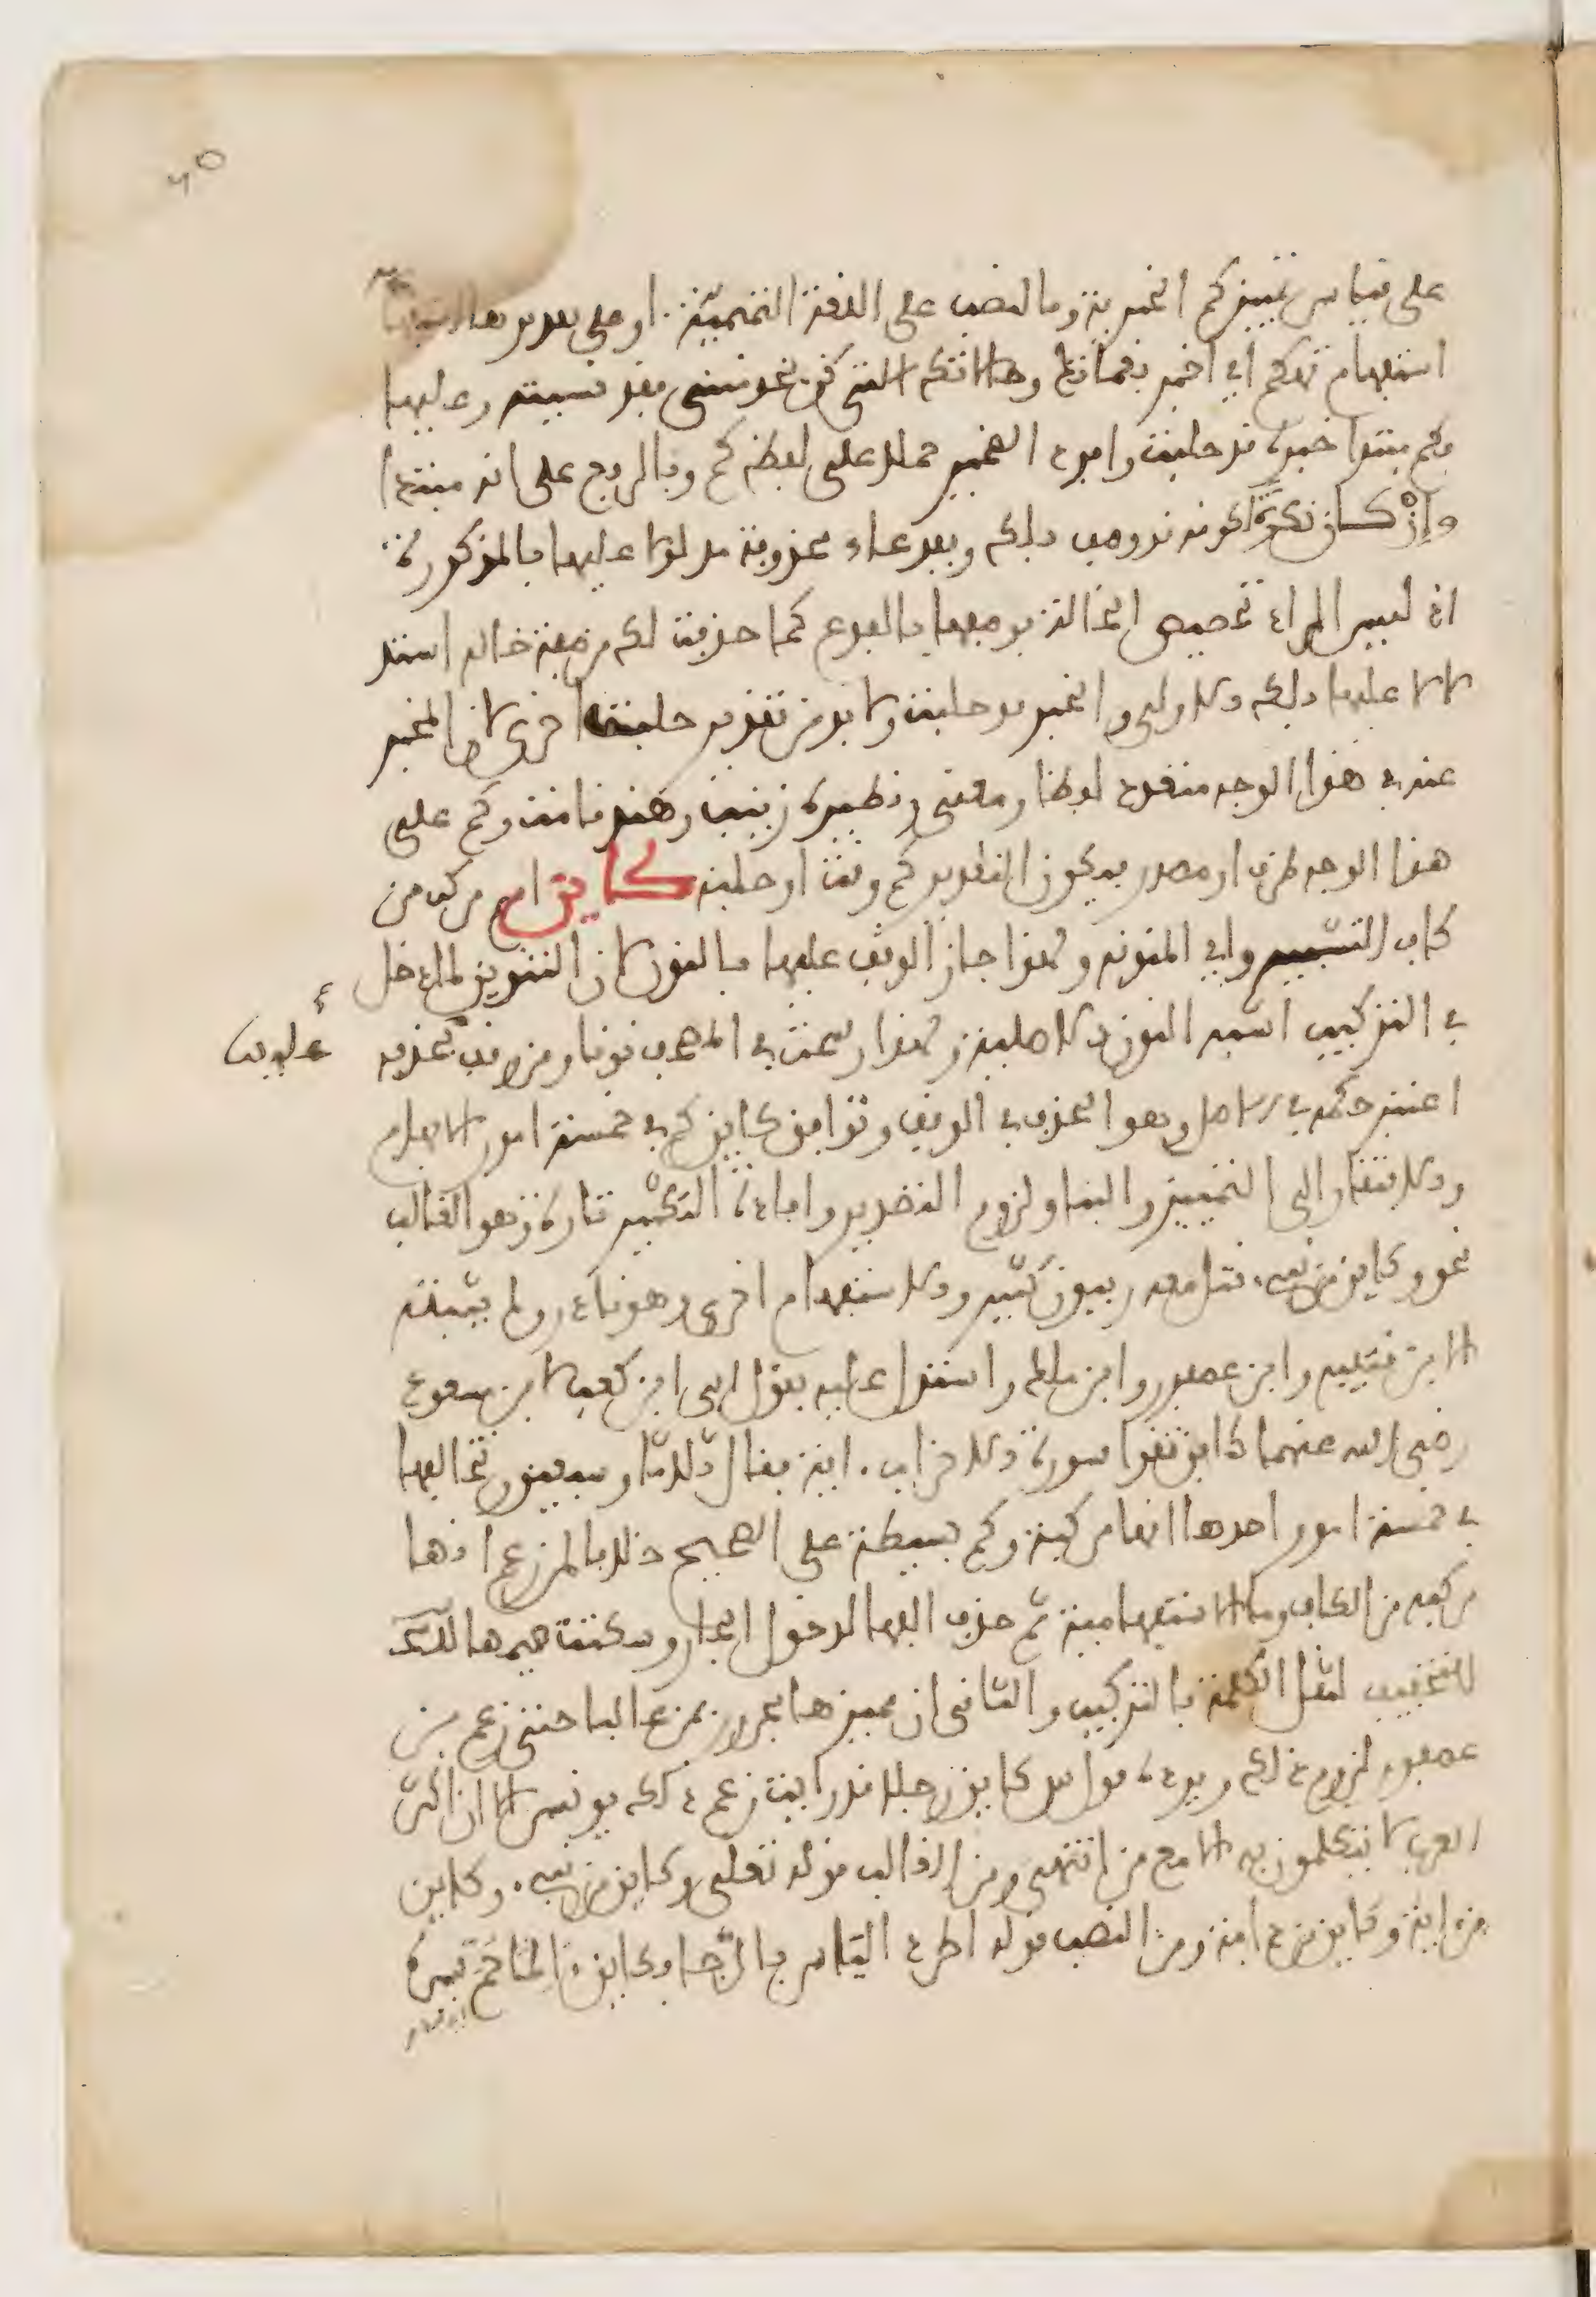 على قياس تمييز كم الخبرية وبالنصب على اللغة التميمية او على تقديرها استفهامية
استفهام تهكم اي اخبرني بعدد عماتك وخالاتك التي كن يخدمنني فقد نسيته وعليهما
فكم مبتدا خبره قد حلبت وافرد الضمير حملا على لفظ كم وبالرفع على انه مبتدا
وان كان نكرة لكونه قد وصف بلك وبفدعاء محذوفة مدلولا عليها بالمذكورة
اذ ليس المراد تخصيص الخالة بوصفها بالفدع كما حذفت لك من صفة خاله استد
لالا عليها بلك الاولى والخبر قد حلبت ولا بد من تقدير حلبت اخرى لان المخبر
عنه في هذا الوجه متعدد لفظا ومعنى ونظيره زينب وهند قامت وكم على
هذا الوجه ظرف او مصدر فيكون التقدير كم وقت او حلبة كاين اسم مركب من
كاف التشبيه واي المنونه ولهذا جاز الوقف عليها بالنون لان التنوين لما دخل
في التركيب اشبه النون الاصلية ولهذا رسمت في المصحف نونا ومن وقف بحذفه
اعتبر حكمه في الاصل وهو الحذف في الوقف وتوافق كاين كم في خمسة امور الابهام
والافتقار الى التمييز والبنا ولزوم التصدير وافادة التكثير تارة وهو الغالب
نحو وكاين من نبيء قتل معه ربيون كثير والاستفهام اخرى وهو نادر ولم يثبته
الا بن قتيبه وابن عصفور وابن ملك واستدل عليه بقول ابي ابن كعب لابن مسعود
رضي الله عنهما كاين تقرا سورة الاحزاب اية فقال ثلاثا وسبعين وتخالفها
في خمسة امور احدها انها مركبة وكم بسيطة على الصحيح خلافا لمن زعم انها
مركبه من الكاف وما الاستفهامية ثم حذف الفها لدخول الجار وسكنت ميمها
للتخفيف لثقل الكلمة بالتركيب والثاني ان مميزها مجرور بمن غالبا حتى زعم بن
عصفور لزوم ذلك ويرده قول س كاين رجلا قد رايت زعم ذلك يونس الا ان اكثر
العرب لا يتكلمون به الا مع من انتهى ومن الغالب قوله تعلى وكاين من نبيء وكاين
من اية وكاين من دابة ومن النصب قوله اطرد الياس بالرجا فكاين الما حم يسره